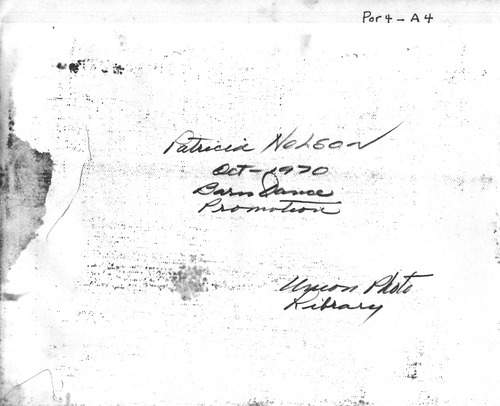 Por 4 - A 4
Patricia Nelson
Oct - 1970
Barn Dance
Promotion
Union Photo
Library